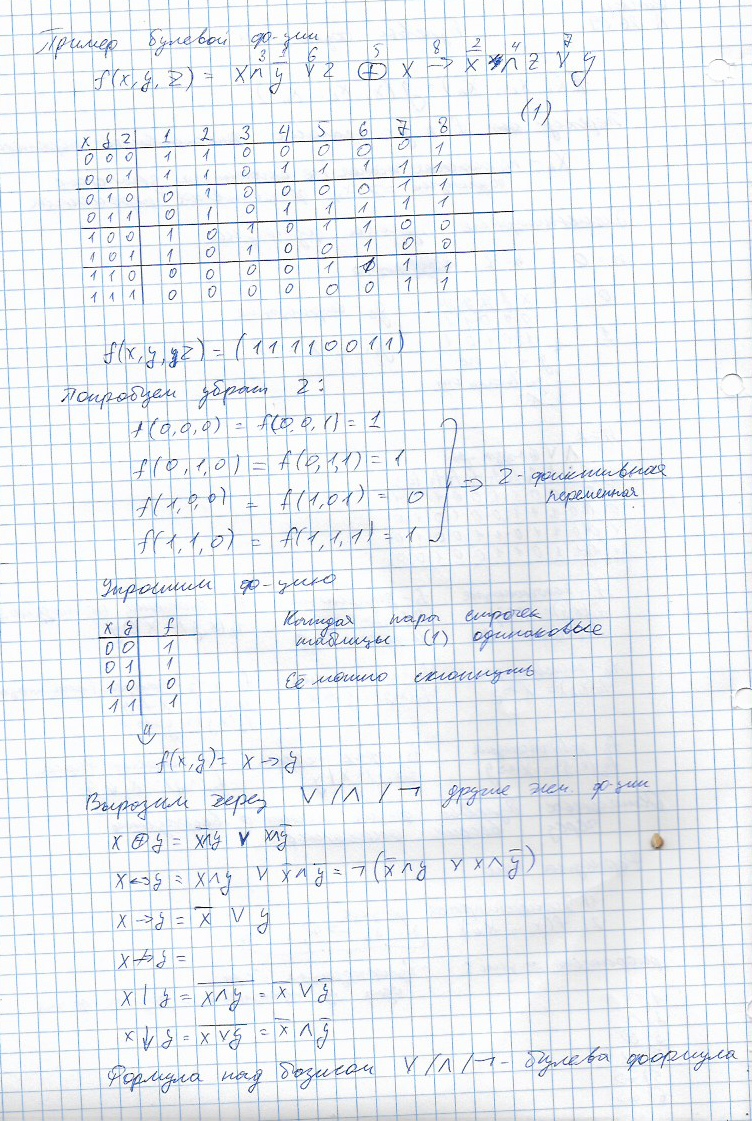 Пример булевой ф-ции
3 1 6 5 8 2 4 7
f(x,y,z) = x∧ȳ ∨ z ⊕ x → x̄ ∧ z ∨ y
(1)
x y z 1 2 3 4 5 6 7 8
0 0 0 1 1 0 0 0 0 0 1
0 0 1 1 1 0 1 1 1 1 1
0 1 0 0 1 0 0 0 0 1 1
0 1 1 0 1 0 1 1 1 1 1
1 0 0 1 0 1 0 1 1 0 0
1 0 1 1 0 1 0 0 1 0 0
1 1 0 0 0 0 0 1 1 1 1
1 1 1 0 0 0 0 0 0 1 1
f(x,y,z) = (11110011)
Попробуем убрать z:
f(0,0,0) = f(0,0,1) = 1
f(0,1,0) = f(0,1,1) = 1
f(1,0,0) = f(1,01) = 0
f(1,1,0) = f(1,1,1) = 1
⇒ z - фиктивная
переменная
Упростим ф-цию
x y f
0 0 1
0 1 1
1 0 0
1 1 1
Каждая пара строчек
таблицы (1) одинаковые
Её можно схлопнуть
⇓
f(x,y) = x → y
Выразим через ∨ / ∧ / ¬ другие эл ф-ции
x ⊕ y = x̄∧y ∨ x∧ȳ
x ↔ y = x∧y ∨ x̄∧ȳ = ¬(x̄∧y ∨ x∧ȳ)
x → y = x̄ ∨ y
x ↛ y =
x | y = x̅∧̅y̅ = x̄ ∨ ȳ
x ↓ y = x̅∨̅y̅ = x̄ ∧ ȳ
Формула над базисом ∨ / ∧ / ¬ - булева формула